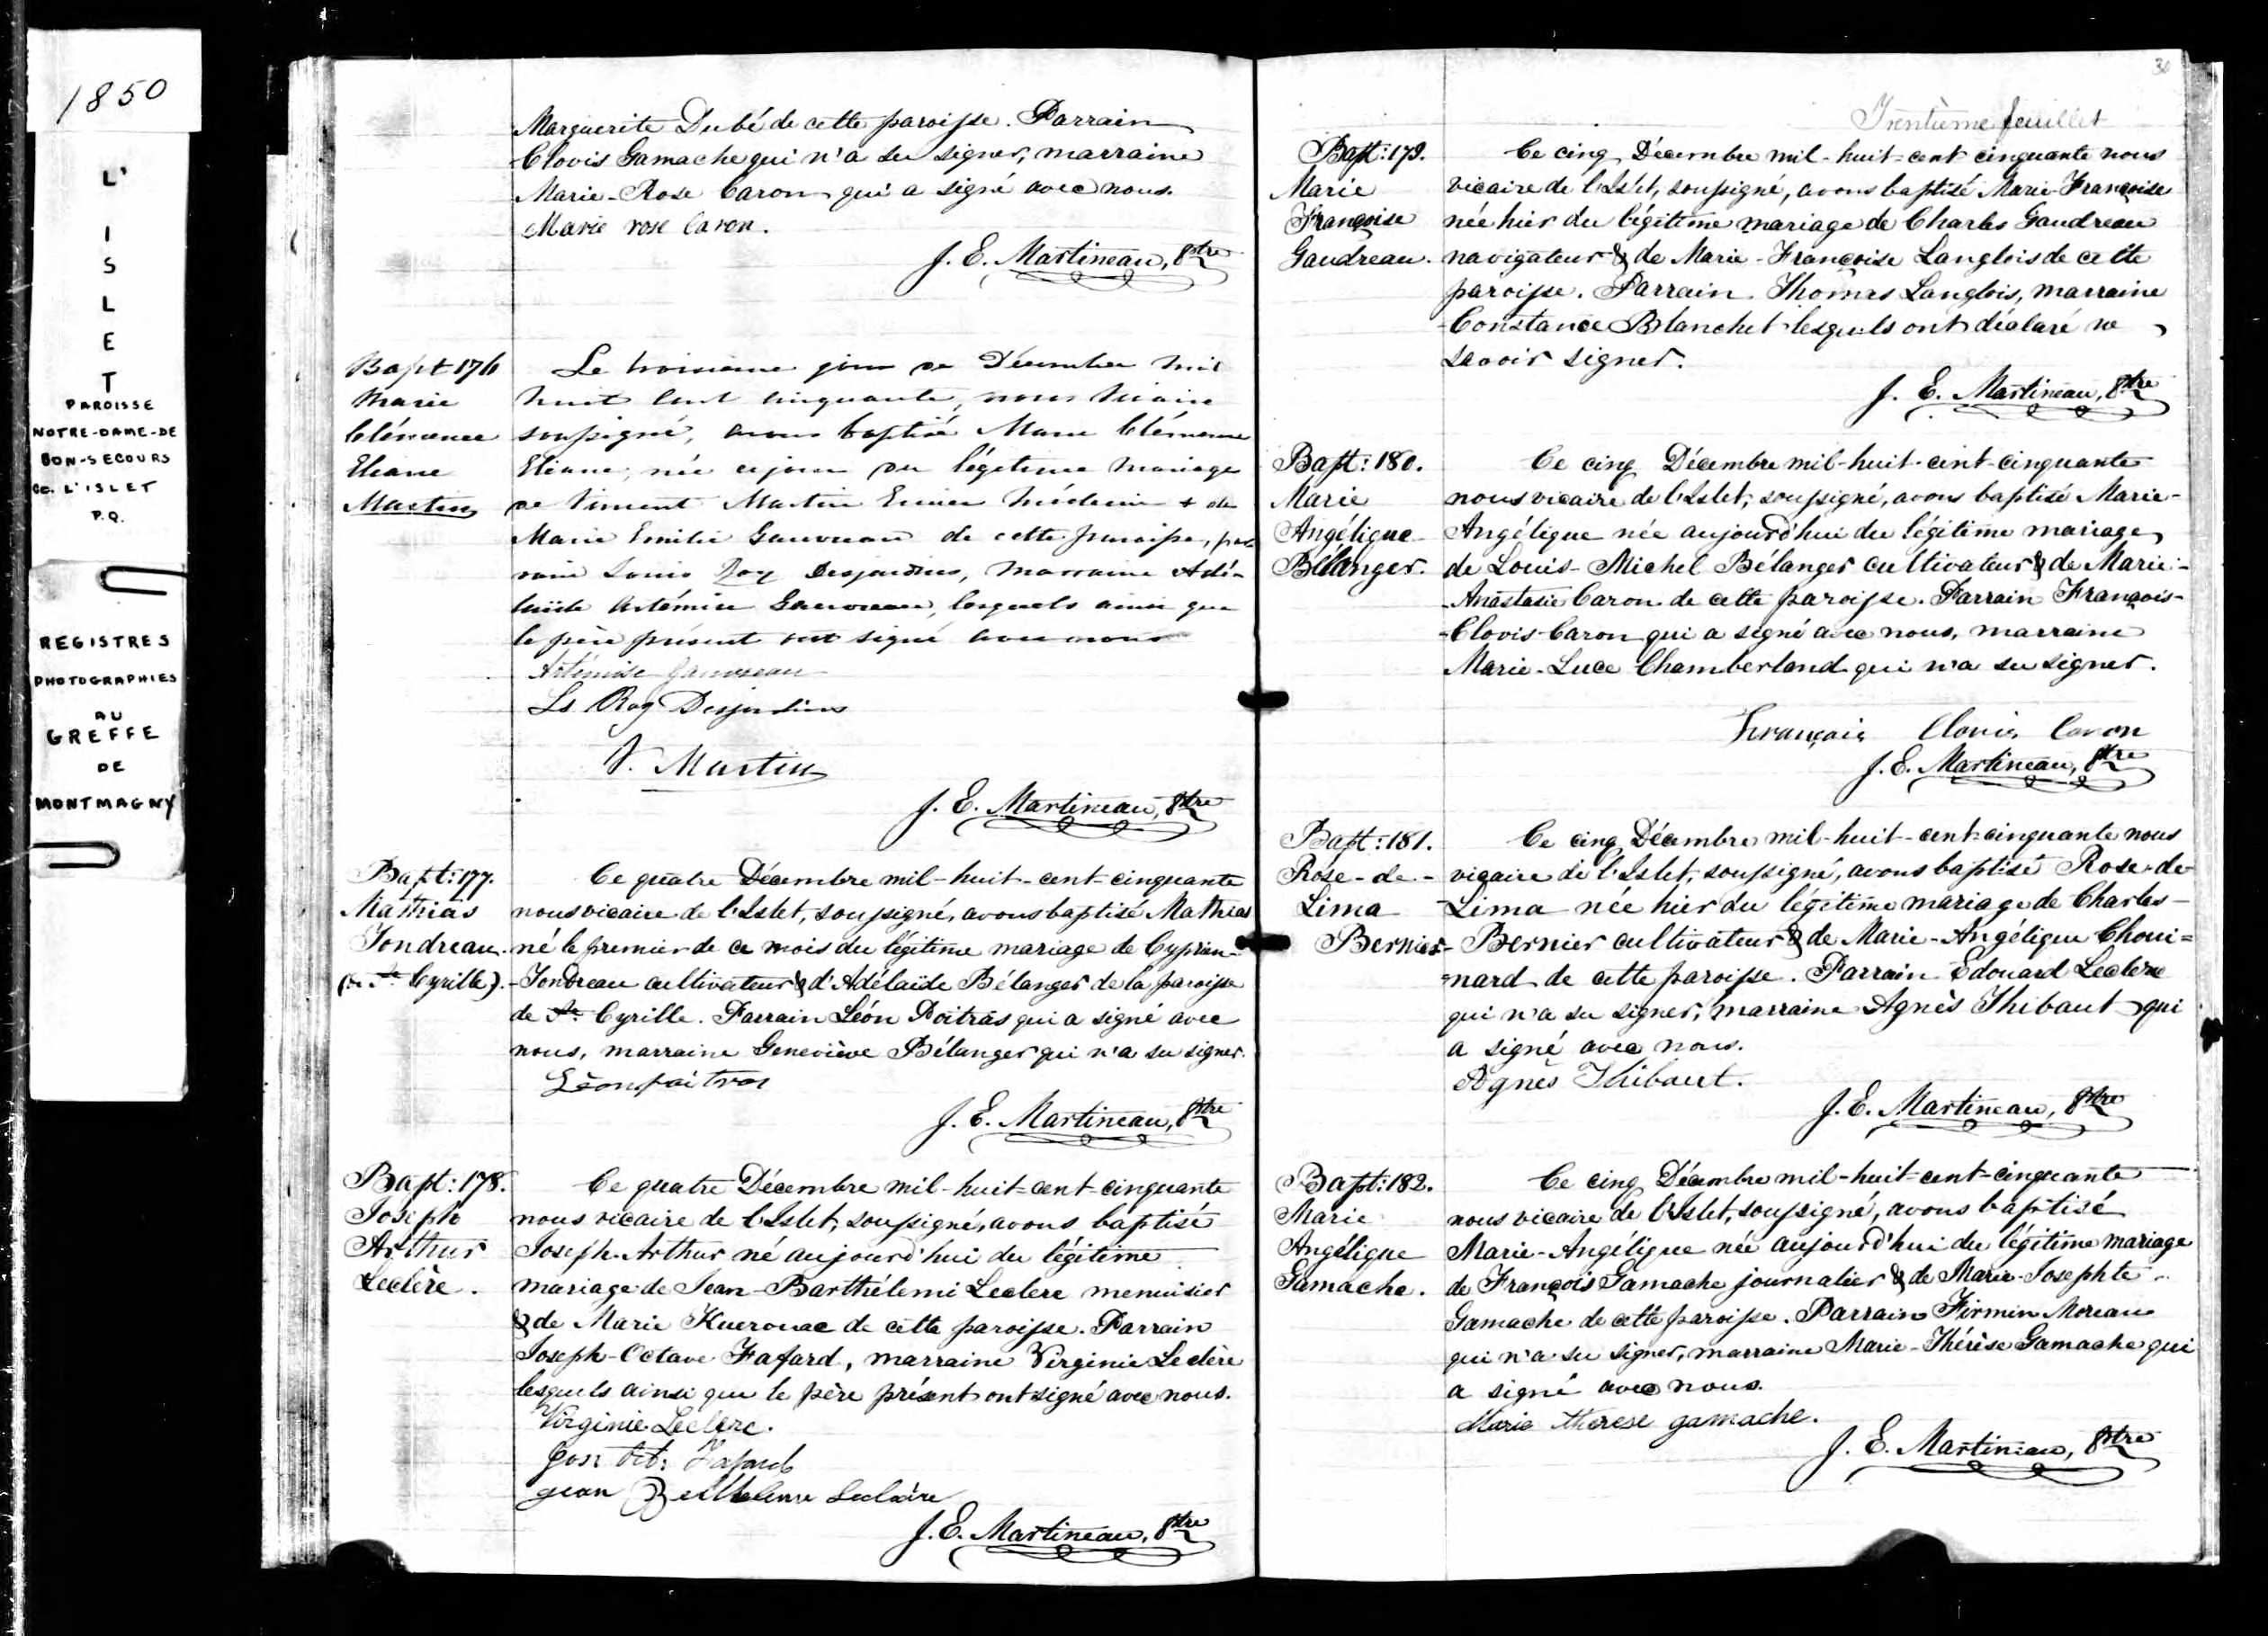 1850
L'
I
S
L
E
T
PAROISSE
NOTRE-DAME-DE
BON-SECOURS
Co. L'ISLET
P.Q.
REGISTRES
PHOTOGRAPHIES
AU
GREFFE
DE
MONTMAGNY
Marguerite Dubé de cette paroisse. Parrain
Clovis Gamache qui n'a su signer, marraine
Marie-Rose Caron qui a signé avec nous.
Marie rose Caron.
J. E. Martineau, Ptre
Bapt 176
Marie
Clémence
Eliane
Martin
Le troisieme jour de Décembre mil
huit cent cinquante, nous vicaire
soussigné, avons baptisé Marie Clémence
Eliane, née ce jour du légitime mariage
de Vincent Martin Ecuier Médecin + de
Marie Emilie Gauvreau de cette paroisse, par
rain Louis Roy Desjardins, marraine Adé-
laïde Artémise Gauvreau, lesquels ainsi que
le père présent ont signé avec nous
Artémise Gauvreau
Ls Roy Desjardins
V. Martin
J. E. Martineau, Ptre
Bapt: 177.
Mathias
Tondreau.
(de St. Cyrille).
Ce quatre Décembre mil-huit-cent-cinquante
nous vicaire de l'Islet, soussigné, avons baptisé Mathias
né le premier de ce mois du légitime mariage de Cyprien-
-Tondreau cultivateur & d'Adélaïde Bélanger de la paroisse
de St. Cyrille. Parrain Léon Poitras qui a signé avec
nous, marraine Geneviève Bélanger qui n'a su signer.
Léon poitras
J. E. Martineau, Ptre
Bapt: 178.
Joseph
Arthur
Leclère.
Ce quatre Décembre mil-huit-cent-cinquante
nous vicaire de l'Islet, soussigné, avons baptisé
Joseph-Arthur né aujourd'hui du légitime
mariage de Jean-Barthélemi Leclere menuisier
& de Marie Kuerouac de cette paroisse. Parrain
Joseph-Octave Fafard, marraine Virginie Leclère
lesquels ainsi que le père présent ont signé avec nous.
Virginie Leclere.
Jos: Oct: Fafard
jean Leclère
J. E. Martineau, Ptre
30
Trentième feuillet
Bapt: 179.
Marie
Françoise
Gaudreau.
Ce cinq Décembre mil-huit-cent cinquante nous
vicaire de l'Islet, soussigné, avons baptisé Marie-Françoise
née hier du légitime mariage de Charles Gaudreau
navigateur & de Marie-Françoise Langlois de cette
paroisse. Parrain Thomas Langlois, marraine
Constance Blanchet lesquels ont déclaré ne
savoir signer.
J. E. Martineau, Ptre
Bapt: 180.
Marie
Angélique
Bélanger.
Ce cinq Décembre mil-huit-cent-cinquante
nous vicaire de l'Islet, soussigné, avons baptisé Marie-
Angélique née aujourd'hui du légitime mariage
de Louis-Michel Bélanger cultivateur & de Marie-
-Anastasie Caron de cette paroisse. Parrain François-
-Clovis Caron qui a signé avec nous, marraine
Marie-Luce Chamberland qui n'a su signer.
François Clovis Caron
J. E. Martineau, Ptre
Bapt: 181.
Rose-de-
Lima
Bernier-
Ce cinq Décembre mil-huit-cent-cinquante nous
vicaire de l'Islet, soussigné, avons baptisé Rose-de-
-Lima née hier du légitime mariage de Charles-
Bernier cultivateur & de Marie-Angélique Choui=
=nard de cette paroisse. Parrain Edouard Leclere
qui n'a su signer, marraine Agnès Thibaut qui
a signé avec nous.
Agnès Thibaut.
J. E. Martineau, Ptre
Bapt: 182.
Marie
Angélique
Gamache.
Ce cinq Décembre mil-huit-cent-cinquante
nous vicaire de l'Islet, soussigné, avons baptisé
Marie-Angélique née aujourd'hui du légitime mariage
de François Gamache journalier & de Marie-Josephte
Gamache de cette paroisse. Parrain Firmin Moreau
qui n'a su signer, marraine Marie-Thérèse Gamache qui
a signé avec nous.
Marie therese gamache.
J. E. Martineau, Ptre